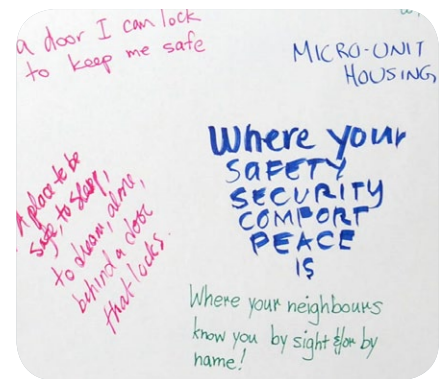 a door I can lock
to keep me safe
MICRO-UNIT
HOUSING,
Where your
SAFETY
SECURITY
COMFORT
PEACE
IS
A place to be
safe, to sleep,
to dream, alone,
behind a door
that locks.
Where your neighbours
know you by sight &/or by
name!